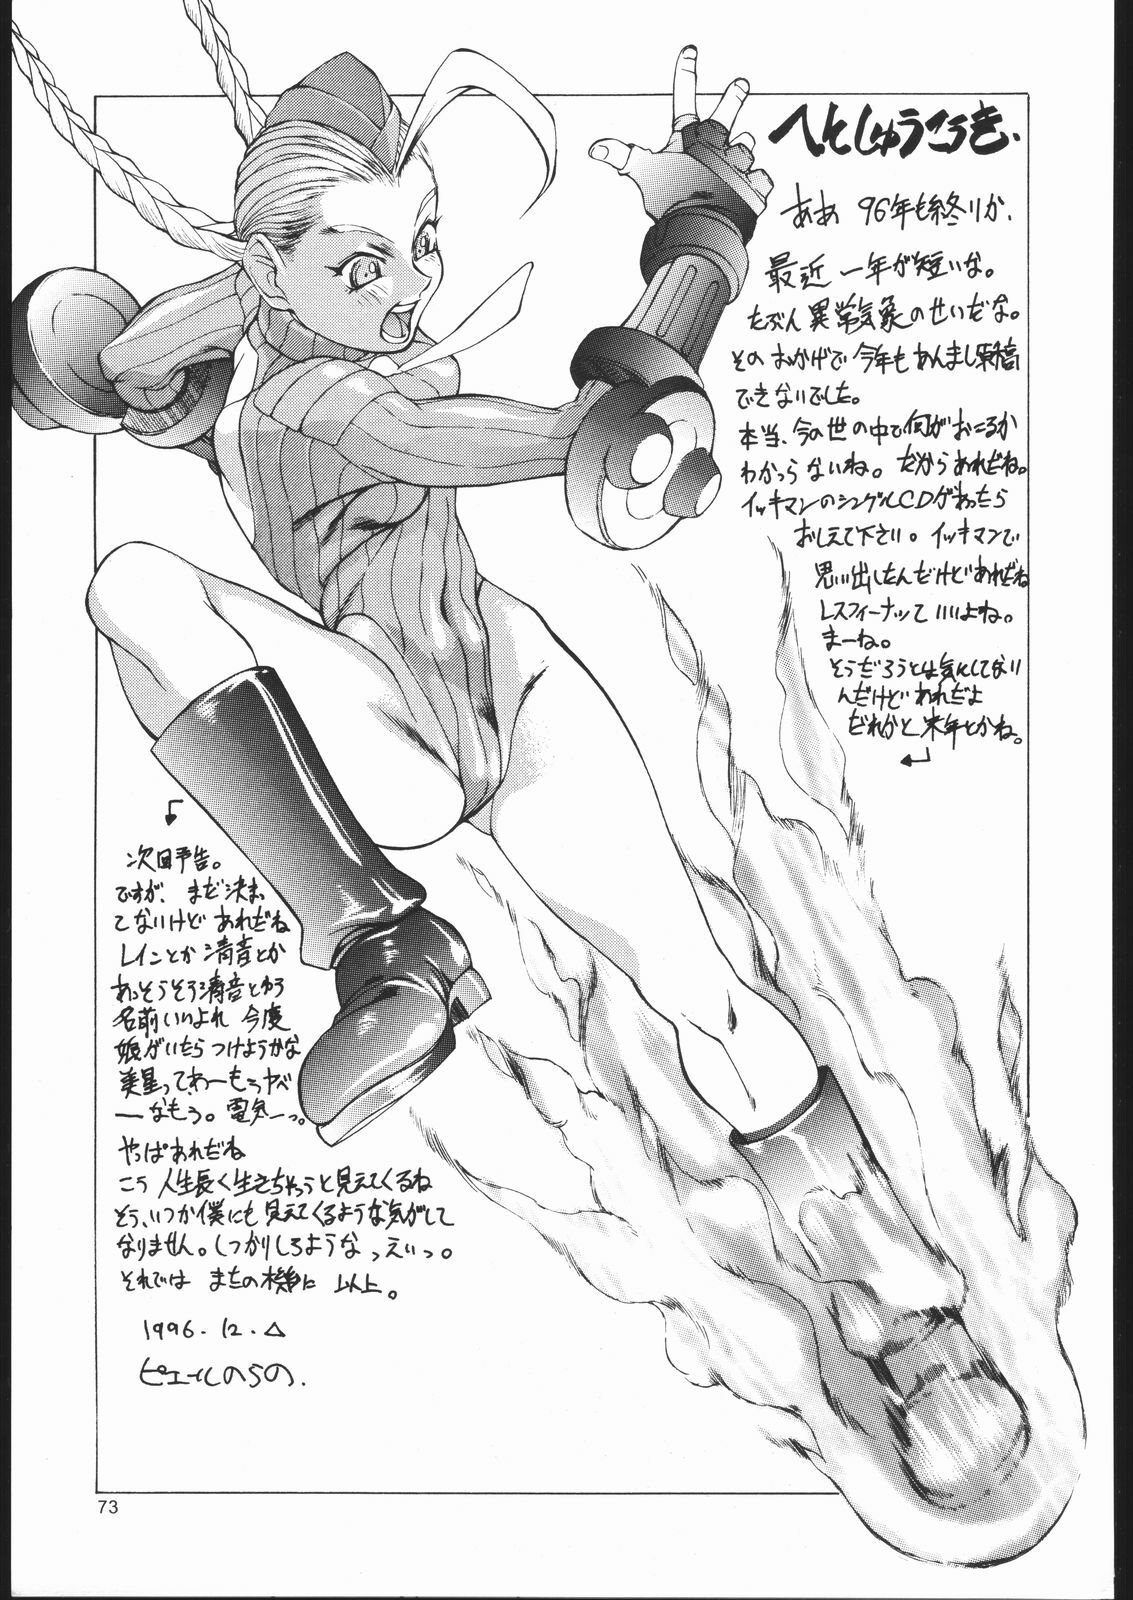 へとしゅうこうき、
ああ 96年も終りか、
最近 一年が短いな。
たぶん 異常気象のせいだな。
そのおかげで今年もあんまし原稿
できないでした。
本当、今の世の中で何がおこるか
わかっらないね。だからあれだね。
イッキマンのシングルCDがあったら
おしえて下さい。イッキマンで
思い出したんだけどあれだね
レスフィーナって いいよね。
まーね。
そうだろうとは気にしてない
んだけど あれだよ
だれかと 来年とかね。
次回予告。
ですが、まだ決まっ
てないけど あれだね
レインとか 清音とか
あっそうそう清音とゆう
名前いいよね 今度
娘がいたら つけようかな
美星って、わーもうヤベ
ーなもう。電気ーっ。
やっぱあれだね
こう 人生長く生きちゃうと見えてくるね
そう、いつか僕にも見えてくるような気がして
なりません。しっかりしろよなっえいっ。
それでは またの機会に 以上。
1996.12.△
ピエールのらの、
73